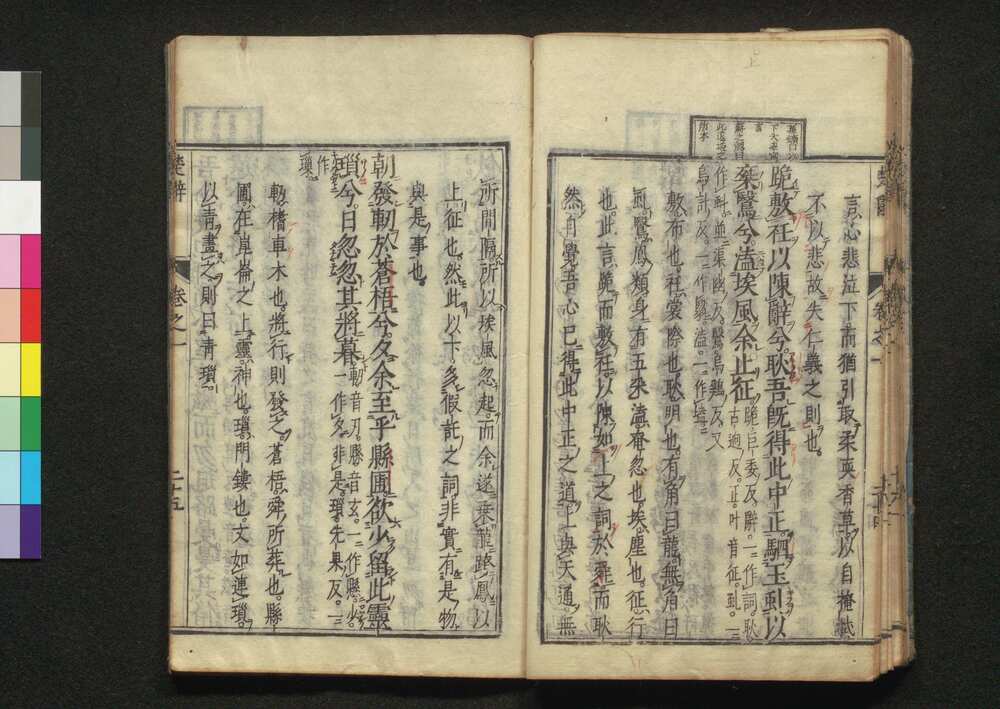 言心悲泣下而猶引取柔耎香草以自掩拭
不以悲故失仁義之則也
跪敷衽以陳辭兮耿吾既得此中正駟玉虬以
椉鷖兮溘埃風余上征
跪巨委反辭一作詞耿
古迥反正叶音征虬一
作虯並渠幽反鷖烏雞反又
烏計反一作翳溘一作
敷布也衽裳際也耿明也有角曰龍無角曰
虬鷖鳳類身有五采溘奄忽也埃塵也征行
也此言跪而敷衽以陳如上之詞於舜而耿
然自覺吾心已得此中正之道上與天通無
所間隔所以埃風忽起而余遂椉龍跨鳳以
上征也然此以下多假託之詞非實有是物
與是事也
朝發軔於蒼梧兮夕余至乎縣圃欲少留此靈
瑣兮日忽忽其將暮
軔音刃縣音玄一作懸少一
作夕非是瑣先果反一
作璅
軔搘車木也將行則發之蒼梧舜所葬也縣
圃在崑崙之上靈神也瑣門鏤也文如連瑣
以青畫之則曰青瑣
楚辭
卷之一
二十五